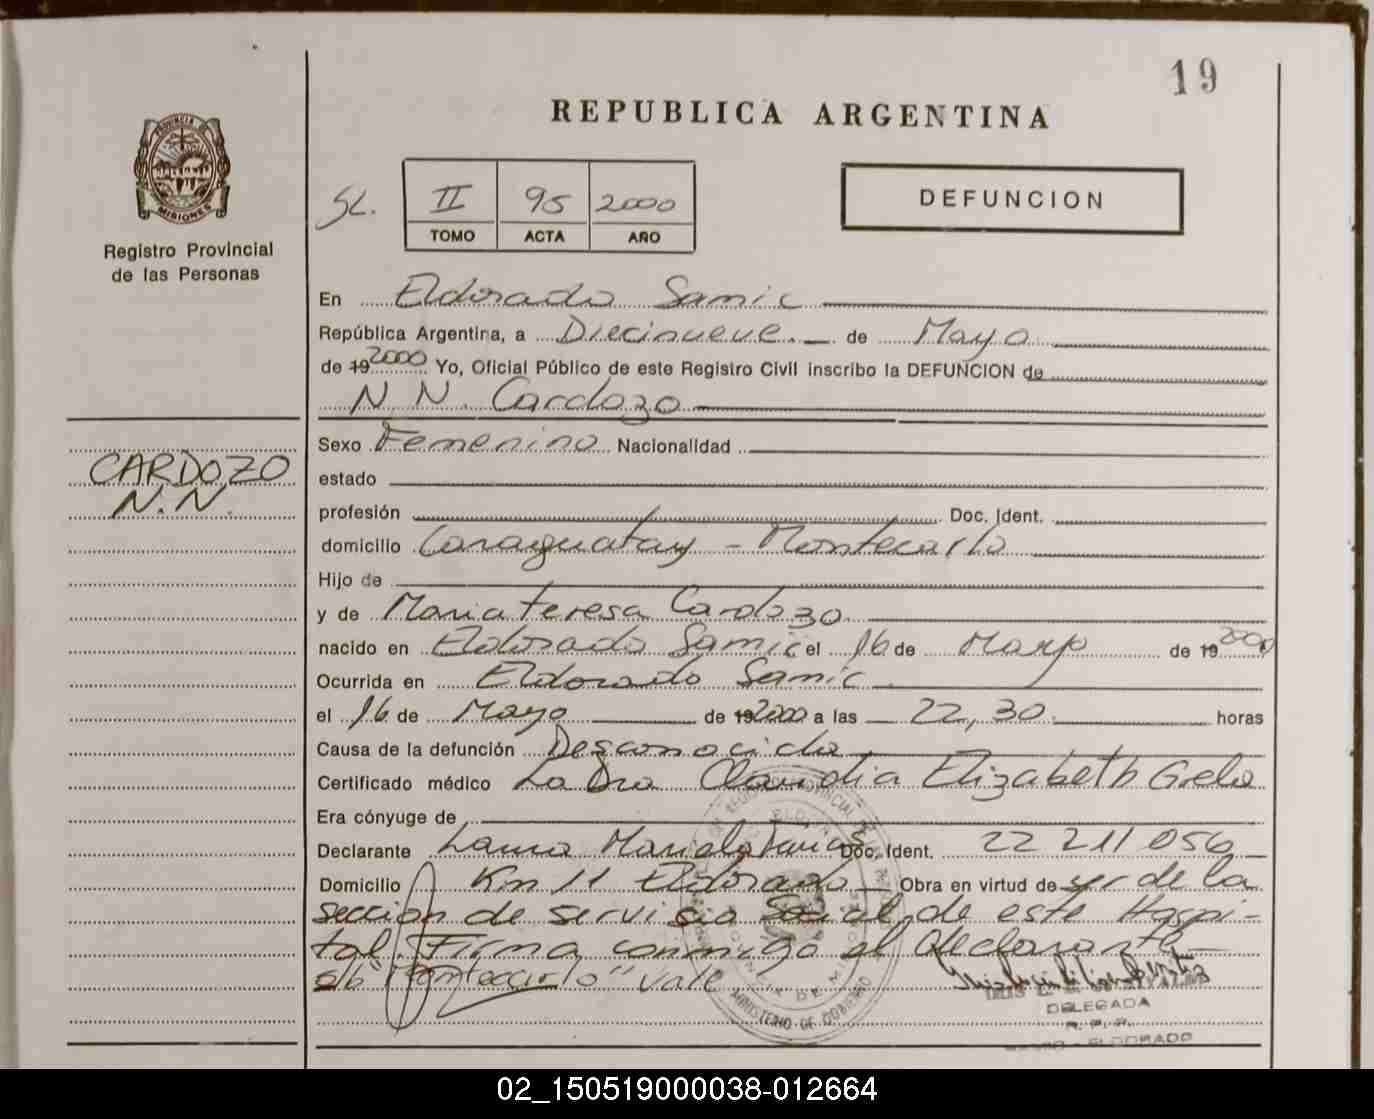 19
REPUBLICA ARGENTINA
PROVINCIA DE
MISIONES
Registro Provincial
de las Personas
SL.
II 95 2000
TOMO ACTA AÑO
DEFUNCION
En Eldorado Samic
República Argentina, a Diecinueve. de Mayo
de 19 2000 Yo, Oficial Público de este Registro Civil inscribo la DEFUNCION de
N N. Cardozo
CARDOZO
N.N.
Sexo Femenino Nacionalidad
estado
profesión Doc. Ident.
domicilio Caraguatay - Montecarlo
Hijo de
y de Maria Teresa Cardozo
nacido en Eldorado Samic el 16 de Mayo de 19 2000
Ocurrida en Eldorado Samic
el 16 de Mayo de 19 2000 a las 22,30 horas
Causa de la defunción Desconocida
Certificado médico La Dra Claudia Elizabeth
Era cónyuge de
Declarante Laura Mariela Doc. Ident. 22 211 056
Domicilio Km 11 Eldorado Obra en virtud de ser de la
sección de servicio Social de este Hospi-
tal. Firma conmigo el declarante
s/b "Montecarlo" vale
MINISTERIO DE GOBIERNO
DELEGADA
R. P. P.
ELDORADO
02_150519000038-012664